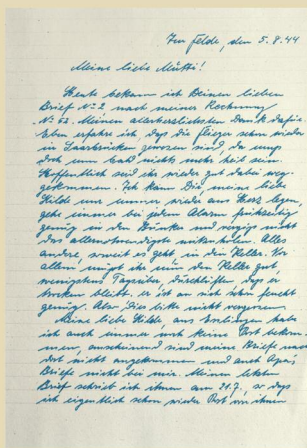 Im Felde, den 5.8.44
Meine liebe Mutti!
Heute bekam ich Deinen lieben
Brief No 2 nach meiner Rechnung
No 52. Meinen allerherzlichsten Dank dafür.
Eben erfahre ich daß die Flieger schon wieder
in Saarbrücken gewesen sind, da muß
doch nun bald nichts mehr heil sein.
Hoffentlich seid ihr wieder gut dabei weg-
gekommen. Ich kann Dir meine liebe
Hilde nur immer wieder ans Herz legen,
gehe immer bei jedem Alarm frühzeitig
genug in den Bunker und vergiß nicht
das allernotwendigste mitzunehmen. Alles
andere, soweit es geht in den Keller. Vor
allem müßt ihr nun den Keller gut
wenigstens Tagsüber, durchlüften, daß er
trocken bleibt, er ist an sich schon feucht
genug. Also Dies bitte nicht vergessen.
Meine liebe Hilde aus habe
ich auch immer noch keine Post bekom-
men, anscheinend sind meine Briefe noch
dort nicht angekommen und auch
Briefe nicht bei mir. Meinen letzten
Brief schrieb ich ihnen am 21.7., so daß
ich eigentlich schon wieder Post von ihnen